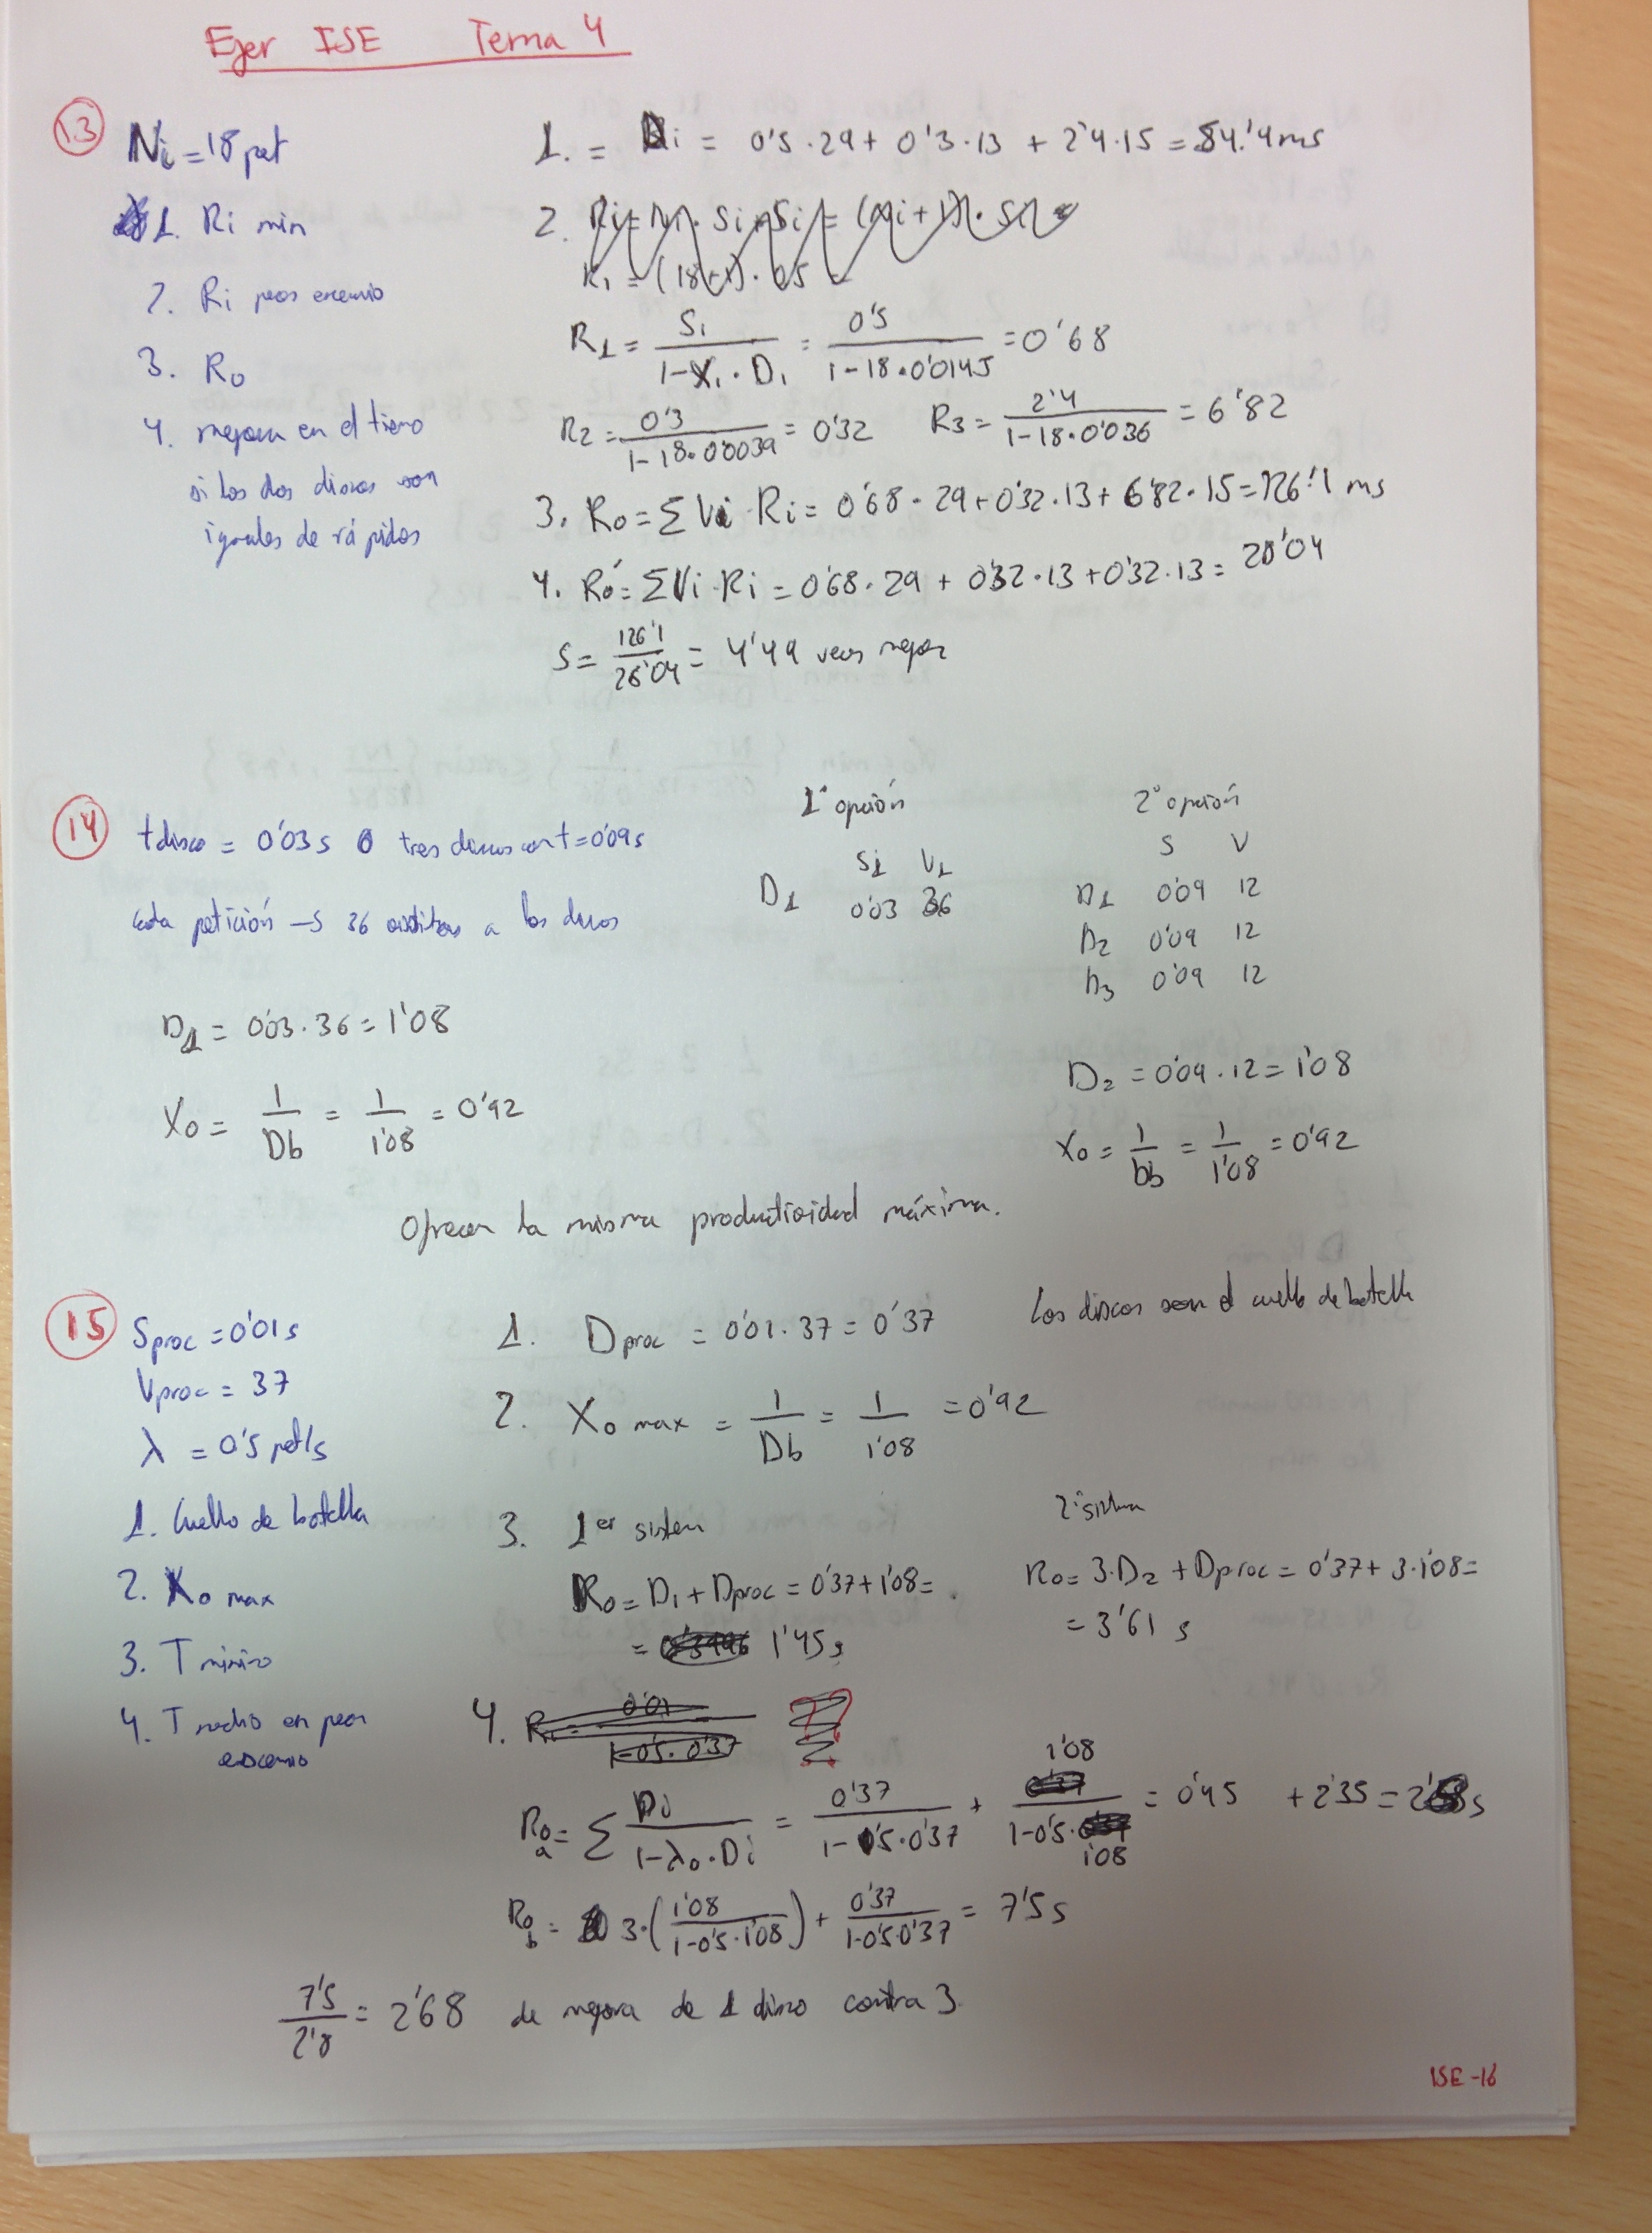 Ejer ISE Tema 4
13
Ni = 18 pet
1. Ri min
2. Ri peor escenario
3. R0
4. mejora en el tiempo
si los dos discos son
iguales de rápidos
1. = Ri = 0'5 · 29 + 0'3 · 13 + 2'4 · 15 = 54'4 ms
2.
R1 = S1 / (1 - X1 · D1) = 0'5 / (1 - 18 · 0'0145) = 0'68
R2 = 0'3 / (1 - 18 · 0'0039) = 0'32 R3 = 2'4 / (1 - 18 · 0'036) = 6'82
3. R0 = Σ Vi · Ri = 0'68 · 29 + 0'32 · 13 + 6'82 · 15 = 126'1 ms
4. R0' = Σ Vi · Ri = 0'68 · 29 + 0'32 · 13 + 0'32 · 13 = 28'04
S = 126'1 / 28'04 = 4'49 veces mejor
14
tdisco = 0'03 s o tres discos con t = 0'09 s
Cada petición → 36 a los discos
1ª opción
Si V1
D1 0'03 36
2ª opción
S V
D1 0'09 12
D2 0'09 12
D3 0'09 12
D1 = 0'03 · 36 = 1'08
X0 = 1 / Db = 1 / 1'08 = 0'92
D2 = 0'09 · 12 = 1'08
X0 = 1 / Db = 1 / 1'08 = 0'92
Ofrecen la misma productividad máxima.
15
Sproc = 0'01 s
Vproc = 37
λ = 0'5 pet/s
1. Cuello de botella
2. X0 max
3. T mínimo
4. T medio en peor
escenario
1. Dproc = 0'01 · 37 = 0'37 Los discos son el cuello de botella
2. X0 max = 1 / Db = 1 / 1'08 = 0'92
3. 1er sistem
R0 = D1 + Dproc = 0'37 + 1'08 =
= 1'45 s
2º sistema
R0 = 3 · D2 + Dproc = 0'37 + 3 · 1'08 =
= 3'61 s
4.
R0a = Σ Di / (1 - λ0 · Di) = 0'37 / (1 - 0'5 · 0'37) + 1'08 / (1 - 0'5 · 1'08) = 0'45 + 2'35 = 2'8 s
R0b = 3 · (1'08 / (1 - 0'5 · 1'08)) + 0'37 / (1 - 0'5 · 0'37) = 7'5 s
7'5 / 2'8 = 2'68 de mejora de 1 disco contra 3
ISE-16